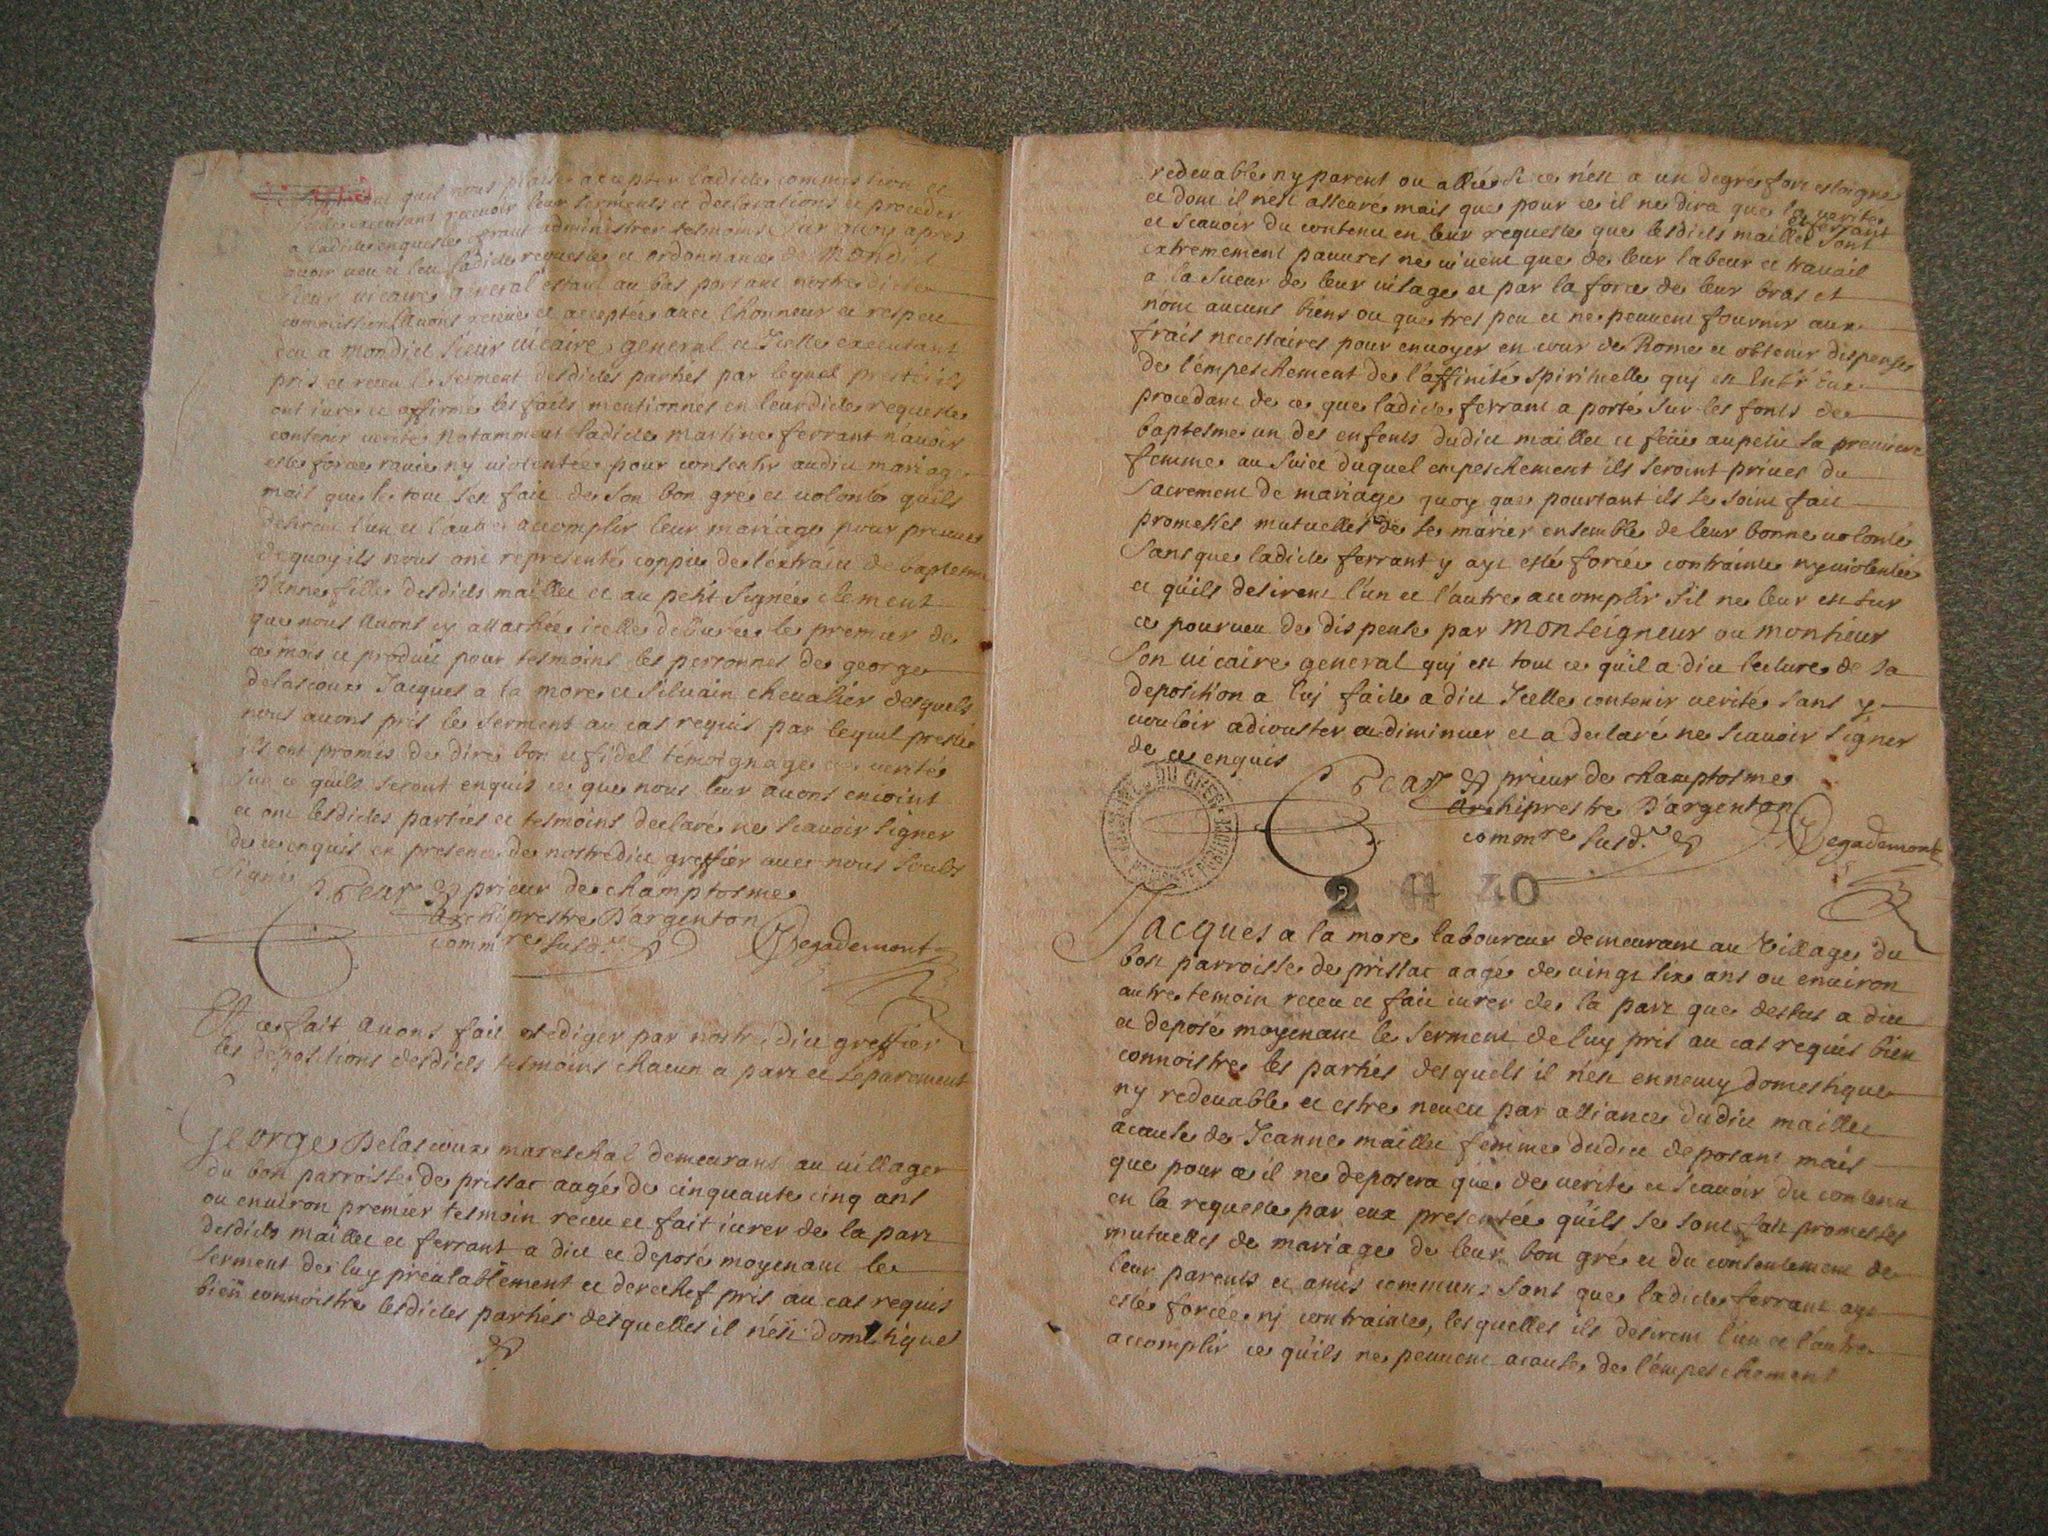 quil nous plaise accepter ladicte commission et
icelle executant recevoir leur serments et declarations et proceder
a ladicte enqueste administrer tesmoins sur quoy apres
avoir veu et leu ladicte requeste et ordonnance de Mondict
sieur vicaire general estant au bas portant nostre dicte
commission lavons receue et acceptée avec lhonneur et respect
deu a mondict sieur vicaire general et Icelle executant
pris et receu le serment desdictes parties par lequel presté ils
ont iuré et affirmé les faits mentionnés en leurdicte requeste
contenir verité notamment ladicte martine ferrant n'avoir
esté forcée ravie ny violentée pour consentir audict mariage
mais que le tout s'est fait de son bon gré et volonté quils
desirent l'un et l'autre accomplir leur mariage pour preuve
de quoy ils nous ont representé coppie de l'extraict de baptesme
d'anne fille desdicts maillet et au petit signée clement
que nous avons cy attachée icelle delivrée le premier de
ce mois et produit pour tesmoins les personnes de george
delascoux Jacques a la more et silvain chevalier desquels
nous avons pris le serment au cas requis par lequel presté
ils ont promis de dire bon et fidel témoignage de verité
sur ce quils seront enquis ce que nous leur avons enioint
et ont lesdictes parties et tesmoins declaré ne scavoir signer
de ce enquis en presence de nostredict greffier avec nous soubs
signé
prieur de champtosme
Archiprestre D'argenton
commre susd.
Degademont
Et ce fait avons fait rediger par nostre dict greffier
les depositions desdicts tesmoins chacun a part et separement
George Delascoux mareschal demeurant au village
du bost parroisse de prissac aagé de cinquante cinq ans
ou environ premier tesmoin receu et fait iurer de la part
desdicts maillet et ferrant a dict et deposé moyenant le
serment de luy préalablement et derechef pris au cas requis
bien connoistre lesdictes parties desquelles il n'est domestique
redevable ny parent ou allié si ce n'est a un degré fort esloigné
et dont il n'est asseuré mais que pour ce il ne dira que la verité
et scavoir du contenu en leur requeste que lesdicts maillet et ferrant sont
extremement pauvres ne vivent que de leur labeur et travail
a la sueur de leur visage et par la force de leur bras et
n'ont aucuns biens ou que tres peu et ne peuvent fournir aux
frais necessaires pour envoyer en cour de Rome et obtenir dispense
de l'empeschement de l'affinité spirituelle qui est entr'eux
procedant de ce que ladicte ferrant a porté sur les fonts de
baptesme un des enfents dudict maillet et feüe aupetit sa premiere
femme au suiet duquel empeschement ils seroint privés du
sacrement de mariage quoy que pourtant ils se soint fait
promesses mutuelles de se marier ensemble de leur bonne volonté
sans que ladicte ferrant y aye esté forcée contrainte ny violentée
et quils desirent l'un et l'autre accomplir s'il ne leur est sur
ce pourveu de dispense par Monseigneur ou monsieur
son vicaire general qui est tout ce quil a dict lecture de sa
deposition a luy faite a dict Icelle contenir verité sans y
vouloir adiouster ou diminuer et a declaré ne scavoir signer
de ce enquis
prieur de champtosme
Archiprestre D'argenton
commre susd.
Degademont
ARCHIVES DU CHER
2 G 40
Jacques a la more laboureur demeurant au village du
bost parroisse de prissac aagé de vingt six ans ou environ
autre temoin receu et fait iurer de la part que dessus a dict
et deposé moyenant le serment de luy pris au cas requis bien
connoistre les parties desquels il n'est ennemy domestique
ny redevable et estre neveu par alliance dudict maillet
acause de Jeanne maillet femme dudict deposant mais
que pour ce il ne deposera que de verité et scavoir du contenu
en la requeste par eux presentée quils se sont fait promesses
mutuelles de mariage de leur bon gré et du consentement de
leur parents et amis communs sans que ladicte ferrant aye
esté forcée ny contrainte, lesquelles ils desirent l'un et l'autre
accomplir ce quils ne peuvent acause de l'empeschement